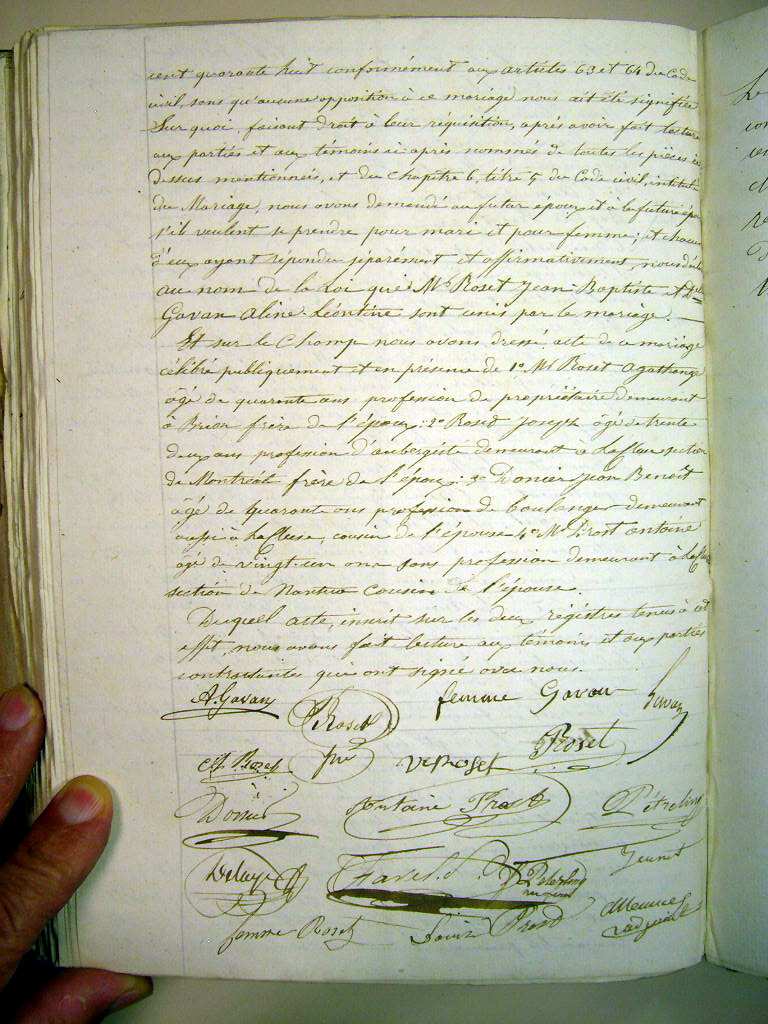 cent quarante huit conformément aux articles 63 et 64 du Code
civil, sans qu'aucune opposition à ce mariage nous ait été signifiée
Sur quoi, faisant droit à leur réquisition, après avoir fait lecture
aux parties et aux témoins ci après nommés de toutes les pièces ci
dessus mentionnées, et du chapitre 6, titre 5 du Code civil, intitulé
du Mariage, nous avons demandé au futur époux et à la future
s'il veulent se prendre pour mari et pour femme; et chacun
d'eux ayant répondu séparément et affirmativement, nous
au nom de la Loi que Mr Roset Jean Baptiste et
Gavan Aline Léontine sont unis par le mariage.
Et sur le Champ nous avons dressé, acte de ce mariage
célébré publiquement et en présence de 1o Mr Roset Agathange
âgé de quarante ans profession de propriétaire demeurant
à Brion frère de l'époux: 2o Roset Joseph âgé de trente
deux ans profession d'aubergiste demeurant à Lacluse section
de Montréal frère de l'époux: 3o Donier Jean Benoît
âgé de quarante ans profession de boulanger demeurant
aussi à Lacluse, cousin de l'épouse 4o Mr Prost Antoine
âgé de vingt-un ans sans profession demeurant à
section de Nantua cousin de l'épouse.
Duquel acte, inscrit sur les deux régistres tenus à cet
effet, nous avons fait lecture aux témoins et aux parties
contractantes qui ont signé avec nous.
A. Gavan femme Gavan Gavan
Roset
Roset Ve Roset JRoset
Donier Antoine Prost
Delaye Jeunet
femme Roset Prost